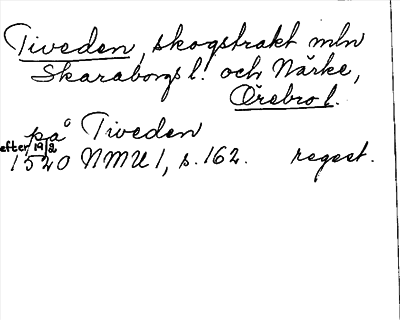 Tiveden, skogstrakt mln
Skaraborgs l. och Närke,
Örebro l.
på Tiveden
efter 19/2
1520 NMU 1, s. 162. regest.